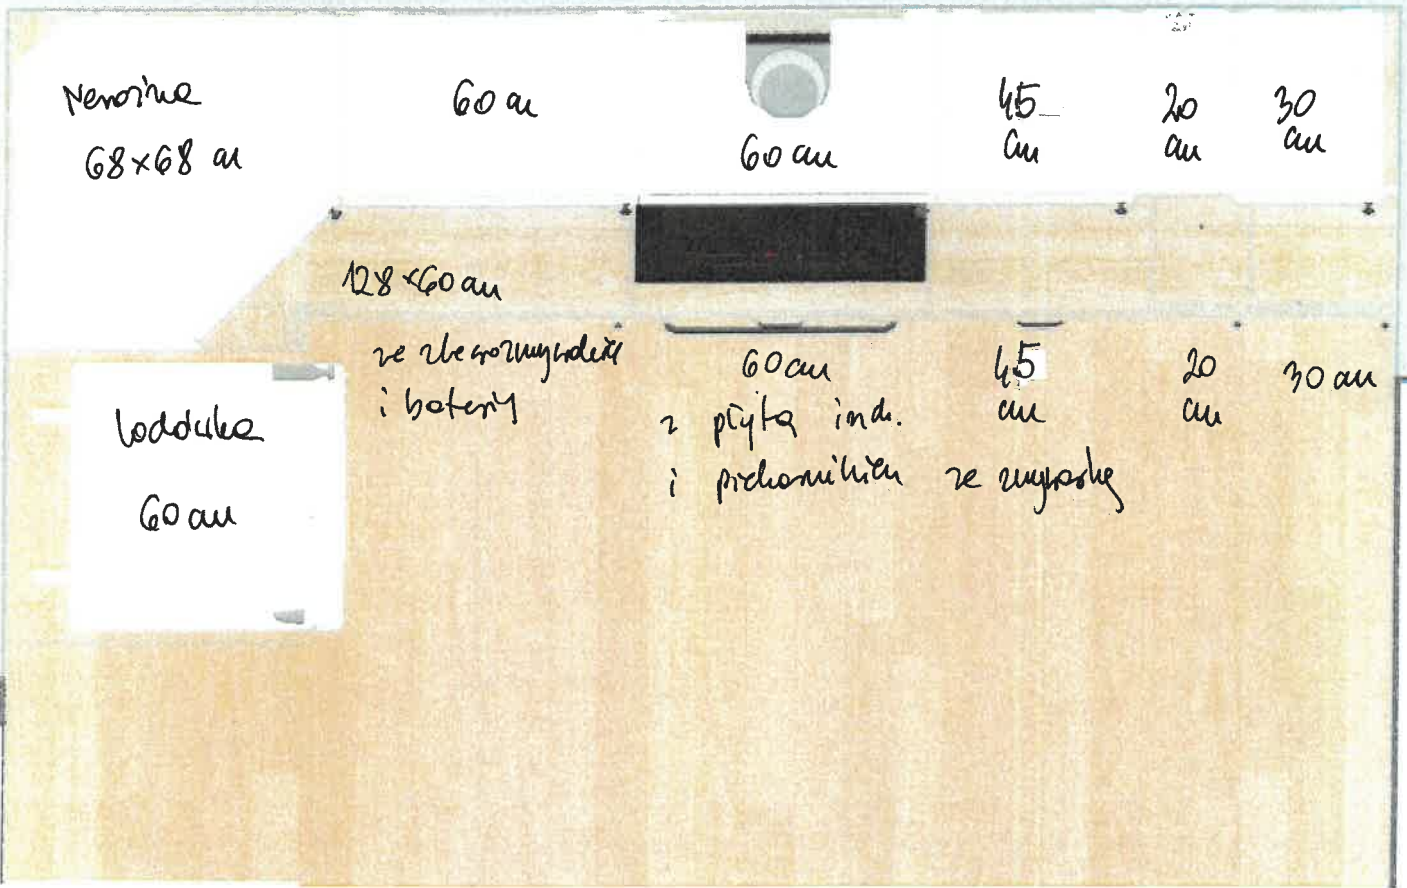 Narożna
68×68 cm
60 cm
60 cm
45 cm
20 cm
30 cm
128×60 cm
ze zlewozmywakiem
i baterią
60 cm
z płytą ind.
i piekarnikiem
45 cm
ze zmywarką
20 cm
30 cm
Lodówka
60 cm